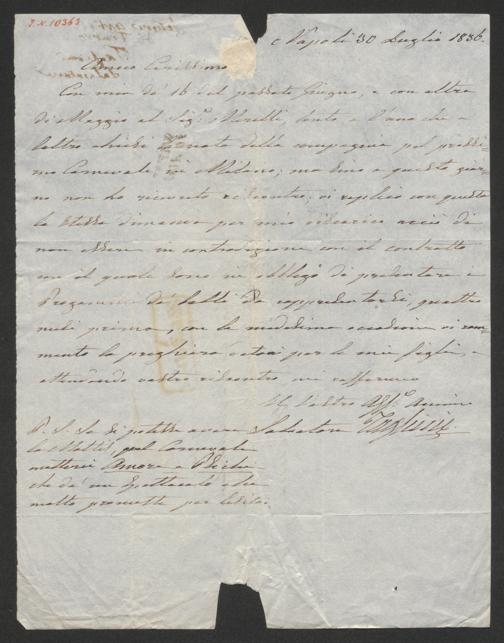 J.N. 10363
Napoli 30 Luglio 1836.
Amico Carissimo
Con mia de' 16 del passato Giugno, e con altra
di Maggio al Sig.r Merelli, tanto a l'uno che a
l'altro chiesi nota della compagnia pel prossi-
mo Carnevale, in Milano, ma sino a questo gior-
no non ho ricevuto riscontro; vi replico con questa
la stessa dimanda per mio discarico acciò di
non essere in contravenzione con il contratto
con il quale sono in obbligo di presentare i
Programmi de' balli da rappresentarsi, quattro
mesi prima, con la medesima occasione vi ram-
mento la preghiera fattavi per le mie figlie, e
attendendo vostro riscontro, mi raffermo
Vostro Aff.o Amico
Salvatore Taglioni
P.S. Se si potesse avere
la pel Carnevale
metterei Amore e Psiche
che da uno Spettacolo e
molto promette per